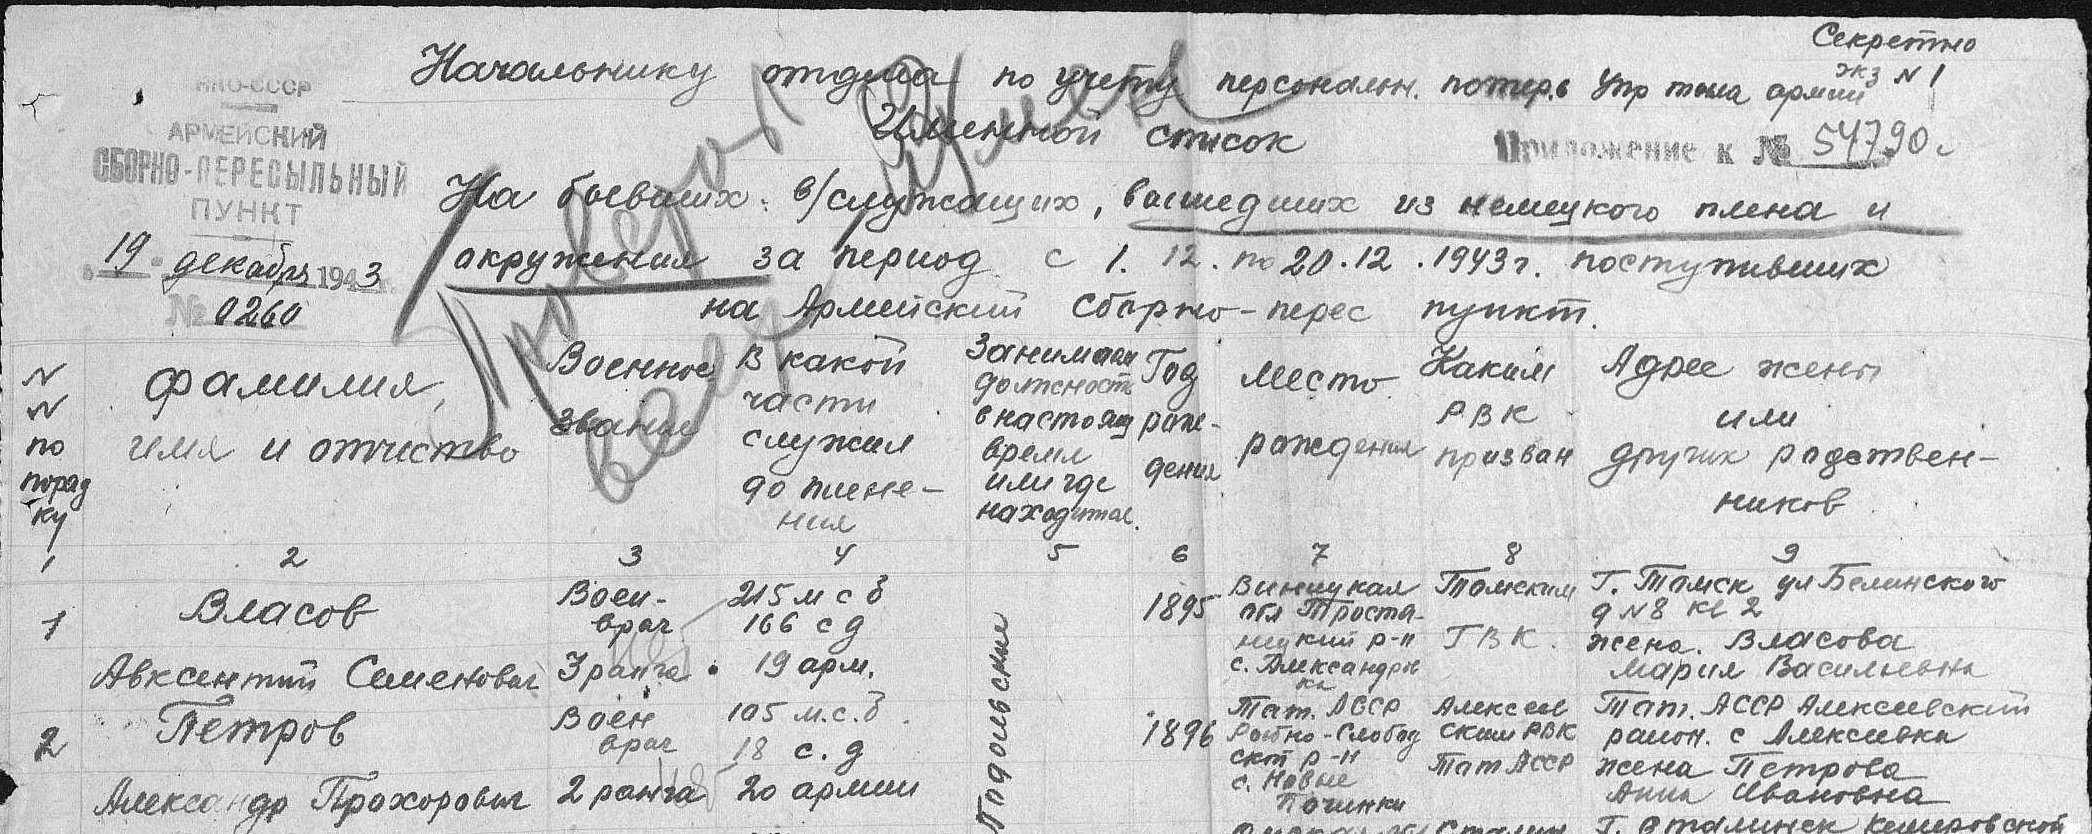 Секретно
экз N 1
Начальнику отдела по учету персональн. потерь Упр тыла армии
Именной список
Приложение к № 54790с
НКО-СССР
АРМЕЙСКИЙ
СБОРНО-ПЕРЕСЫЛЬНЫЙ
ПУНКТ
19 декабря 1943 г.
№ 0260
На бывших в/служащих, вышедших из немецкого плена и
окружения за период с 1.12. по 20.12.1943 г. поступивших
на Армейский сборно-перес пункт.
N N по поряд ку
фамилия, имя и отчество
Военное звание
В какой части служил до плене-ния
Занимаем должность в настоящ время или где находится.
Год рож-дения
место рождения
Каким РВК призван
Адрес жены или других родствен-ников
1 2 3 4 5 6 7 8 9
1
Власов
Авксентий Семенович
Воен-
врач
3 ранга
215 м с б
166 с д
19 арм.
Подольские
1895
Винницкая
обл Троста-
нецкий р-н
с. Александров
ка
Томским
ГВК.
Г. Томск ул Белинского
д N 8 кв 2
жена. Власова
Мария Васильевна
2
Петров
Александр Прохорович
Воен
врач
2 ранга
105 м.с.б.
18 с. д
20 армии
1896
Тат. АССР
Рыбно-Слобод
ской р-н
с. Новые
Починки
Алексеев
ским РВК
Тат АССР
Тат. АССР Алексеевский
район. с Алексеевка
жена Петрова
Анна Ивановна
Г. Сталинск Кемеровской